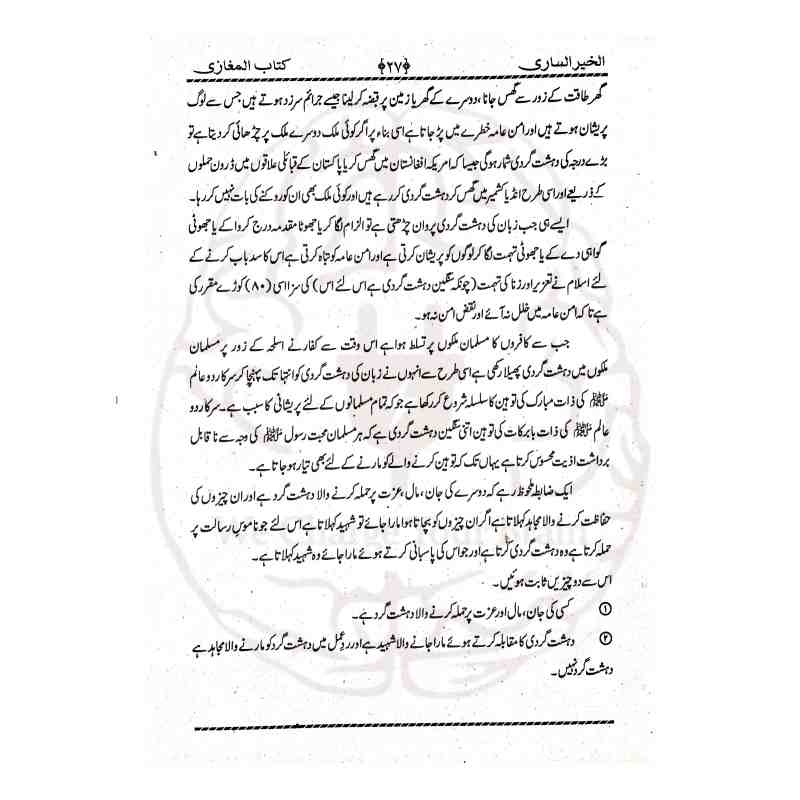 الخیر الساری ﴿۲۷﴾ کتاب المغازی
گھر طاقت کے زور سے گھس جانا، دوسرے کے گھر یا زمین پر قبضہ کر لینا جیسے جرائم سرزد ہوتے ہیں جس سے لوگ
پریشان ہوتے ہیں اور امن عامہ خطرے میں پڑ جاتا ہے اسی بناء پر اگر کوئی ملک دوسرے ملک پر چڑھائی کر دیتا ہے تو
بڑے درجہ کی دہشت گردی شمار ہوگی جیسا کہ امریکہ افغانستان میں گھس کر یا پاکستان کے قبائلی علاقوں میں ڈرون حملوں
کے ذریعے اور اسی طرح انڈیا کشمیر میں گھس کر دہشت گردی کر رہے ہیں اور کوئی ملک بھی ان کو روکنے کی بات نہیں کر رہا۔
ایسے ہی جب زبان کی دہشت گردی پروان چڑھتی ہے تو الزام لگا کر یا جھوٹا مقدمہ درج کروا کے یا جھوٹی
گواہی دے کے یا جھوٹی تہمت لگا کر لوگوں کو پریشان کرتی ہے اور امن عامہ کو تباہ کرتی ہے اس کا سدباب کرنے کے
لئے اسلام نے تعزیر اور زنا کی تہمت (چونکہ سنگین دہشت گردی ہے اس لئے اس) کی سزا اسی (۸۰) کوڑے مقرر کی
ہے تاکہ امن عامہ میں خلل نہ آئے اور نقض امن نہ ہو۔
جب سے کافروں کا مسلمان ملکوں پر تسلط ہوا ہے اس وقت سے کفار نے اسلحہ کے زور پر مسلمان
ملکوں میں دہشت گردی پھیلا رکھی ہے اسی طرح سے انہوں نے زبان کی دہشت گردی کو انتہا تک پہنچا کر سرکار دو عالم
ﷺ کی ذات مبارک کی توہین کا سلسلہ شروع کر رکھا ہے جو کہ تمام مسلمانوں کے لئے پریشانی کا سبب ہے۔ سرکار دو
عالم ﷺ کی ذات بابرکات کی توہین اتنی سنگین دہشت گردی ہے کہ ہر مسلمان محبت رسول ﷺ کی وجہ سے نا قابل
برداشت اذیت محسوس کرتا ہے یہاں تک کہ توہین کرنے والے کو مارنے کے لئے بھی تیار ہو جاتا ہے۔
ایک ضابطہ ملحوظ رہے کہ دوسرے کی جان، مال، عزت پر حملہ کرنے والا دہشت گرد ہے اور ان چیزوں کی
حفاظت کرنے والا مجاہد کہلاتا ہے اگر ان چیزوں کو بچاتا ہوا مارا جائے تو شہید کہلاتا ہے اس لئے جو ناموس رسالت پر
حملہ کرتا ہے وہ دہشت گردی کرتا ہے اور جو اس کی پاسبانی کرتے ہوئے مارا جائے وہ شہید کہلاتا ہے۔
اس سے دو چیزیں ثابت ہوئیں۔
① کسی کی جان، مال اور عزت پر حملہ کرنے والا دہشت گرد ہے۔
② دہشت گردی کا مقابلہ کرتے ہوئے مارا جانے والا شہید ہے اور رد عمل میں دہشت گرد کو مارنے والا مجاہد ہے
دہشت گرد نہیں۔